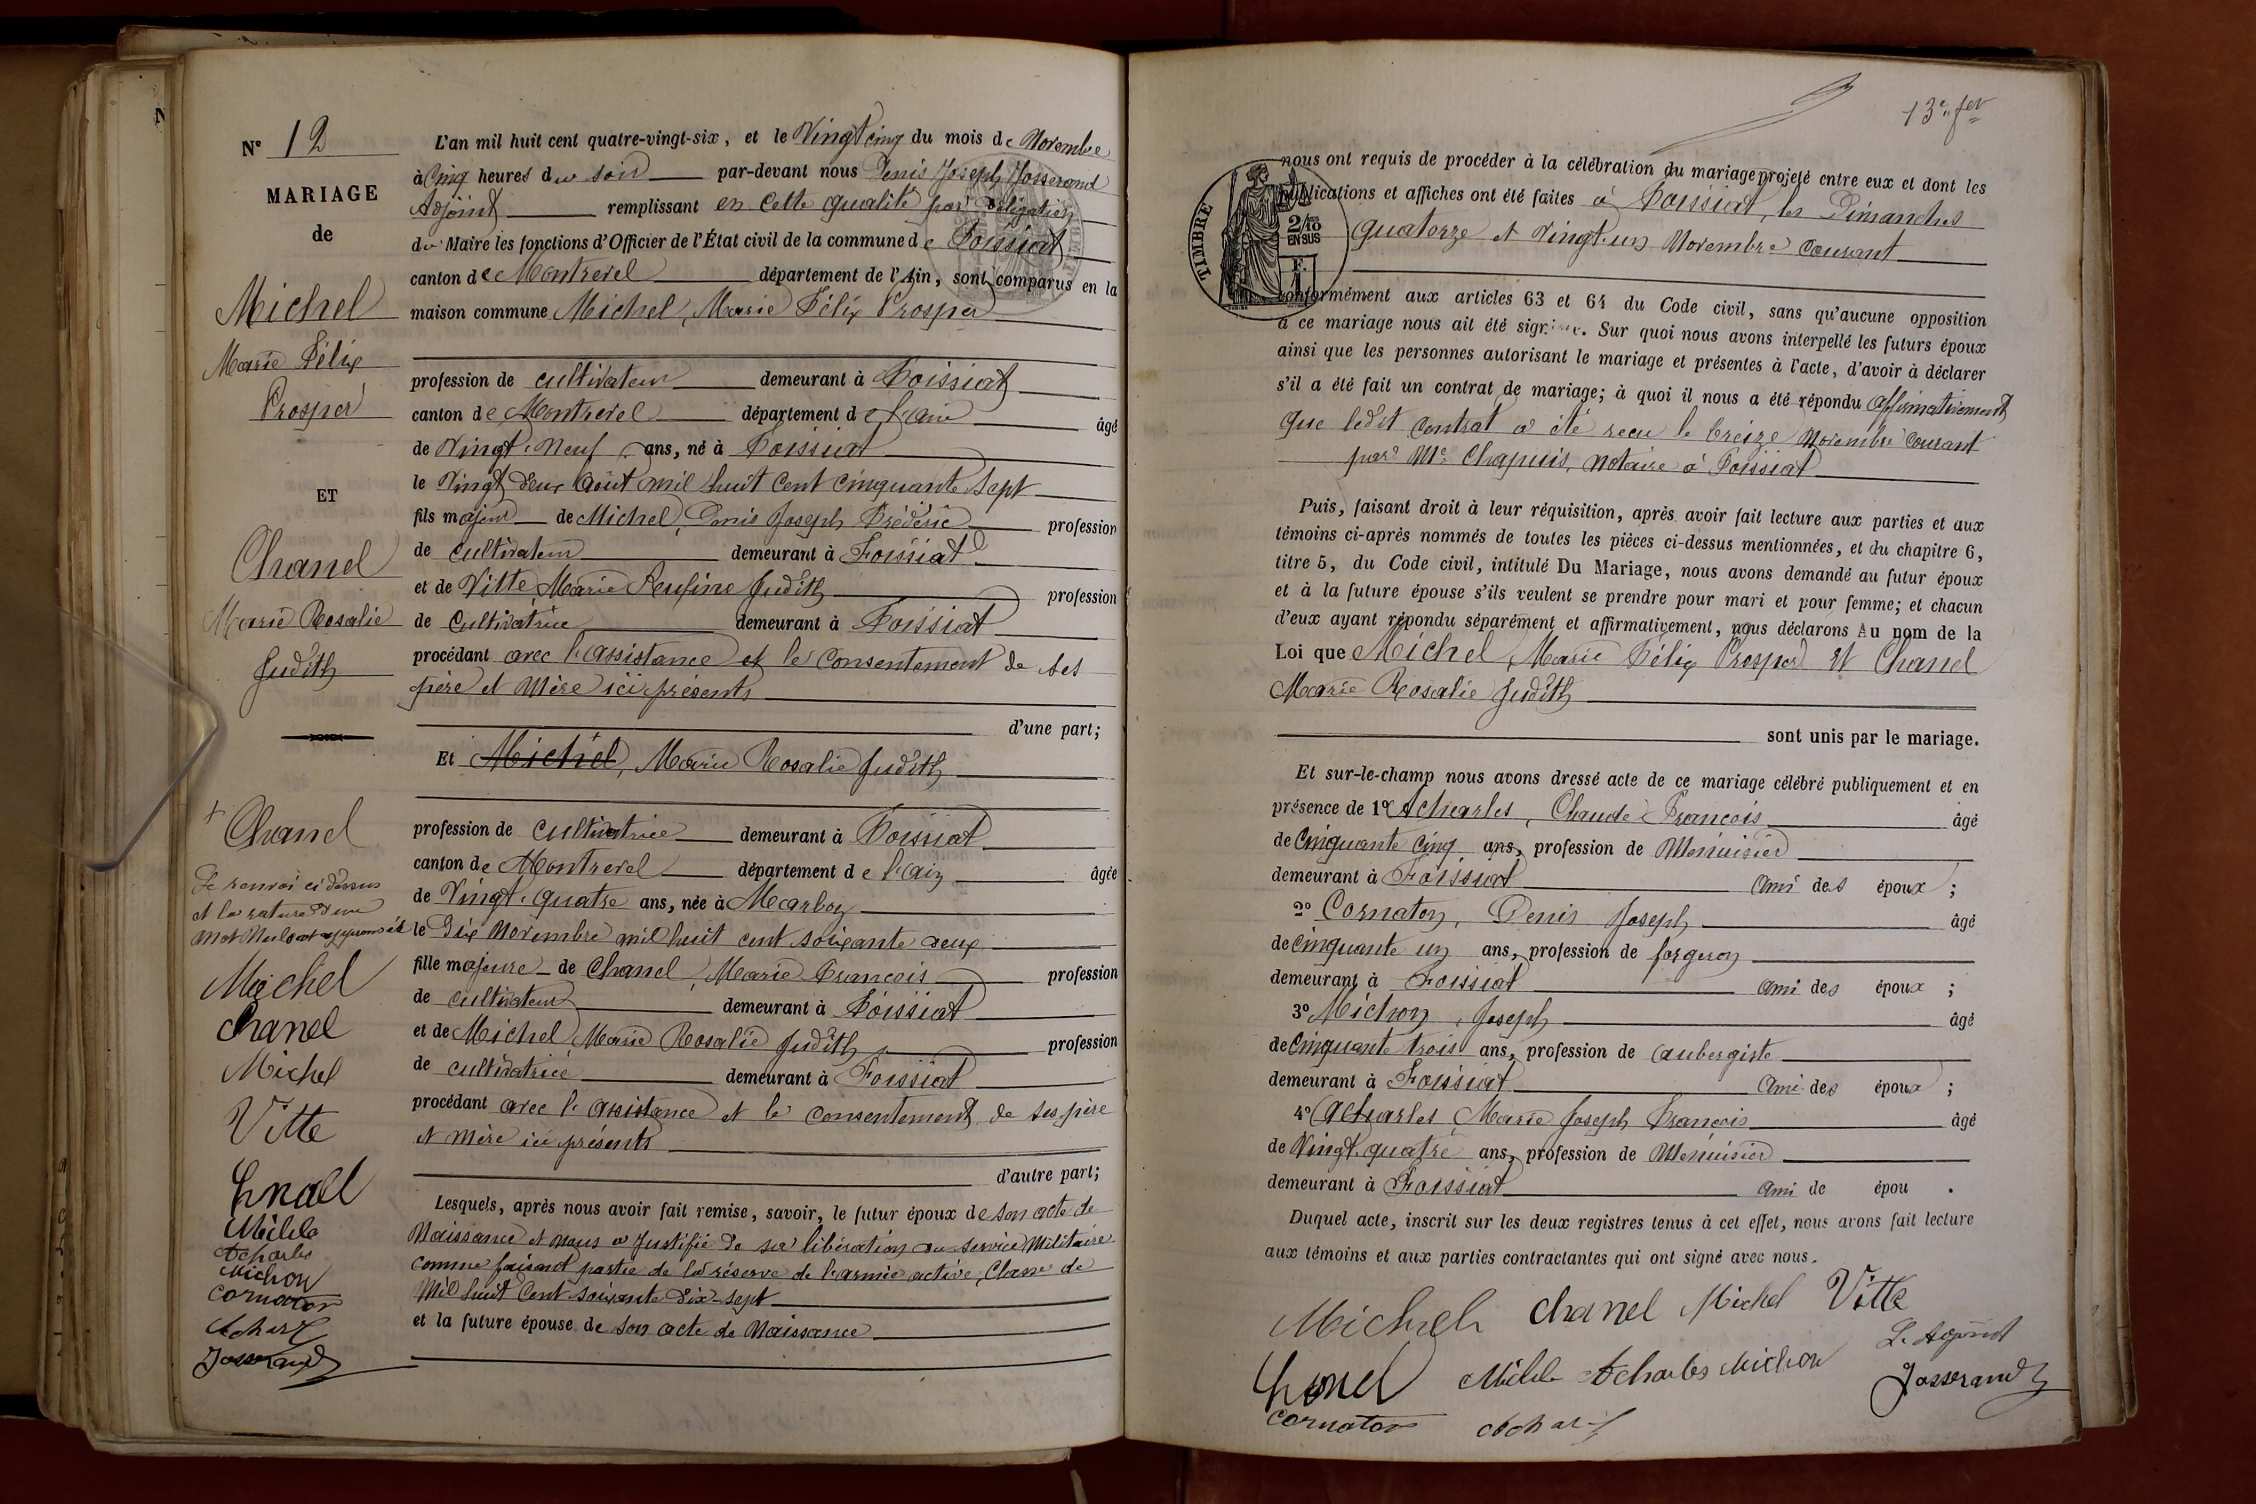 N° 12
MARIAGE
de
Michel
Marie Félix
Prosper
ET
Chanel
Marie Rosalie
Judith
+ Chanel
Le renvoi ci dessus
et la rature d'un
mot nul approuvés
Michel
Chanel
Michel
Vitte
Chanel
Acharles
Michon
Cornaton
Acharles
Josserand
L'an mil huit cent quatre-vingt-six, et le Vingt cinq du mois de Novembre
à Cinq heures du soir par-devant nous Denis Joseph Josserand
Adjoint remplissant en cette qualité par délégation
du Maire les fonctions d'Officier de l'État civil de la commune de Foissiat
canton de Montrevel département de l'Ain, sont comparus en la
maison commune Michel, Marie Félix Prosper
profession de cultivateur demeurant à Foissiat
canton de Montrevel département de l'ain âgé
de Vingt-Neuf ans, né à Foissiat
le Vingt deux Août mil huit cent cinquante sept
fils majeur de Michel, Denis Joseph Frédéric profession
de cultivateur demeurant à Foissiat
et de Vitte Marie Rufine Judith profession
de Cultivatrice demeurant à Foissiat
procédant avec l'assistance et le consentement de ses
père et mère ici présents
d'une part;
Et Michel, Marie Rosalie Judith
profession de cultivatrice demeurant à Foissiat
canton de Montrevel département de l'ain âgée
de Vingt-quatre ans, née à Marboz
le Dix Novembre mil huit cent soixante deux
fille majeure de Chanel, Marie François profession
de cultivateur demeurant à Foissiat
et de Michel Marie Rosalie Judith profession
de cultivatrice demeurant à Foissiat
procédant avec l'assistance et le consentement de ses père
et mère ici présents
d'autre part;
Lesquels, après nous avoir fait remise, savoir, le futur époux de son acte de
Naissance et nous a justifié de sa libération du service Militaire
comme faisant partie de la réserve de l'armée active, Classe de
Mil huit Cent soixante dix-sept
et la future épouse de son acte de Naissance
13e fer
TIMBRE
2/10
EN SUS
nous ont requis de procéder à la célébration du mariage projeté entre eux et dont les
publications et affiches ont été faites à Foissiat, les Dimanches
quatorze et vingt-un Novembre courant
conformément aux articles 63 et 64 du Code civil, sans qu'aucune opposition
à ce mariage nous ait été signifiée. Sur quoi nous avons interpellé les futurs époux
ainsi que les personnes autorisant le mariage et présentes à l'acte, d'avoir à déclarer
s'il a été fait un contrat de mariage; à quoi il nous a été répondu affirmativement
que ledit contrat a été reçu le treize Novembre courant
par Me Chapuis, notaire à Foissiat
Puis, faisant droit à leur réquisition, après avoir fait lecture aux parties et aux
témoins ci-après nommés de toutes les pièces ci-dessus mentionnées, et du chapitre 6,
titre 5, du Code civil, intitulé Du Mariage, nous avons demandé au futur époux
et à la future épouse s'ils veulent se prendre pour mari et pour femme; et chacun
d'eux ayant répondu séparément et affirmativement, nous déclarons Au nom de la
Loi que Michel, Marie Félix Prosper Et Chanel
Marie Rosalie Judith
sont unis par le mariage.
Et sur-le-champ nous avons dressé acte de ce mariage célébré publiquement et en
présence de 1° Acharles, Claude François âgé
de Cinquante cinq ans, profession de Menuisier
demeurant à Foissiat ami des époux;
2° Cornaton, Denis Joseph âgé
de cinquante un ans, profession de forgeron
demeurant à Foissiat ami des époux;
3° Michon, Joseph âgé
de Cinquante trois ans, profession de aubergiste
demeurant à Foissiat ami des époux;
4° Acharles, Marie Joseph François âgé
de Vingt-quatre ans, profession de Menuisier
demeurant à Foissiat ami de épou .
Duquel acte, inscrit sur les deux registres tenus à cet effet, nous avons fait lecture
aux témoins et aux parties contractantes qui ont signé avec nous.
Michel Chanel Michel Vitte
L'Adjoint
Chanel Acharles Michon Josserand
Cornaton